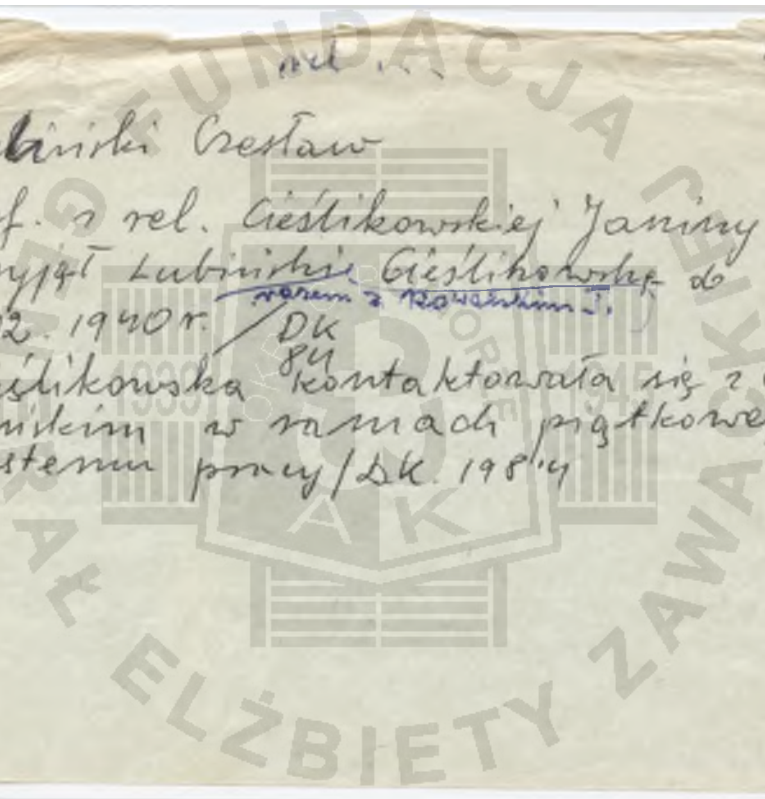 biński Czesław
f. z rel. Cieślikowskiej Janiny
yjął Lubiński Cieślikowską do
razem z Kowalskim J.
2. 1940 r. DK
84
eślikowska kontaktowała się z
ńskim w ramach piątkowe
stemu pracy/DK. 1984
FUNDACJA
GENERAŁ ELŻBIETY ZAWAC
1939
1945
AK